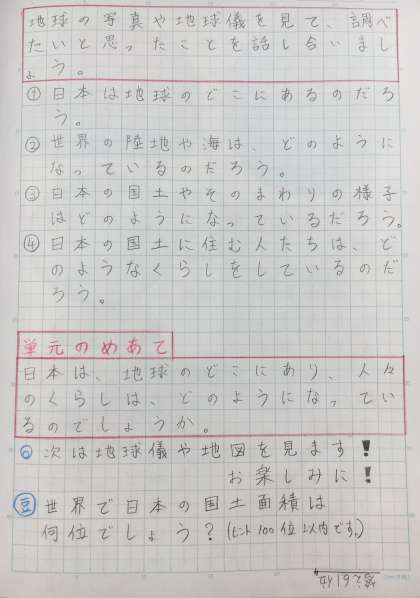 地球の写真や地球儀を見て、調べ
たいと思ったことを話し合いまし
ょう。
①日本は地球のどこにあるのだろ
う。
②世界の陸地や海は、どのように
なっているのだろう。
③日本の国土やそのまわりの様子
はどのようになっているだろう。
④日本の国土に住む人たちは、ど
のようなくらしをしているのだ
ろう。
単元のめあて
日本は、地球のどこにあり、人々
のくらしは、どのようになってい
るのでしょうか。
次は地球儀や地図を見ます!
お楽しみに!
豆 世界で日本の国土面積は
何位でしょう?(ヒント100位以内です。)